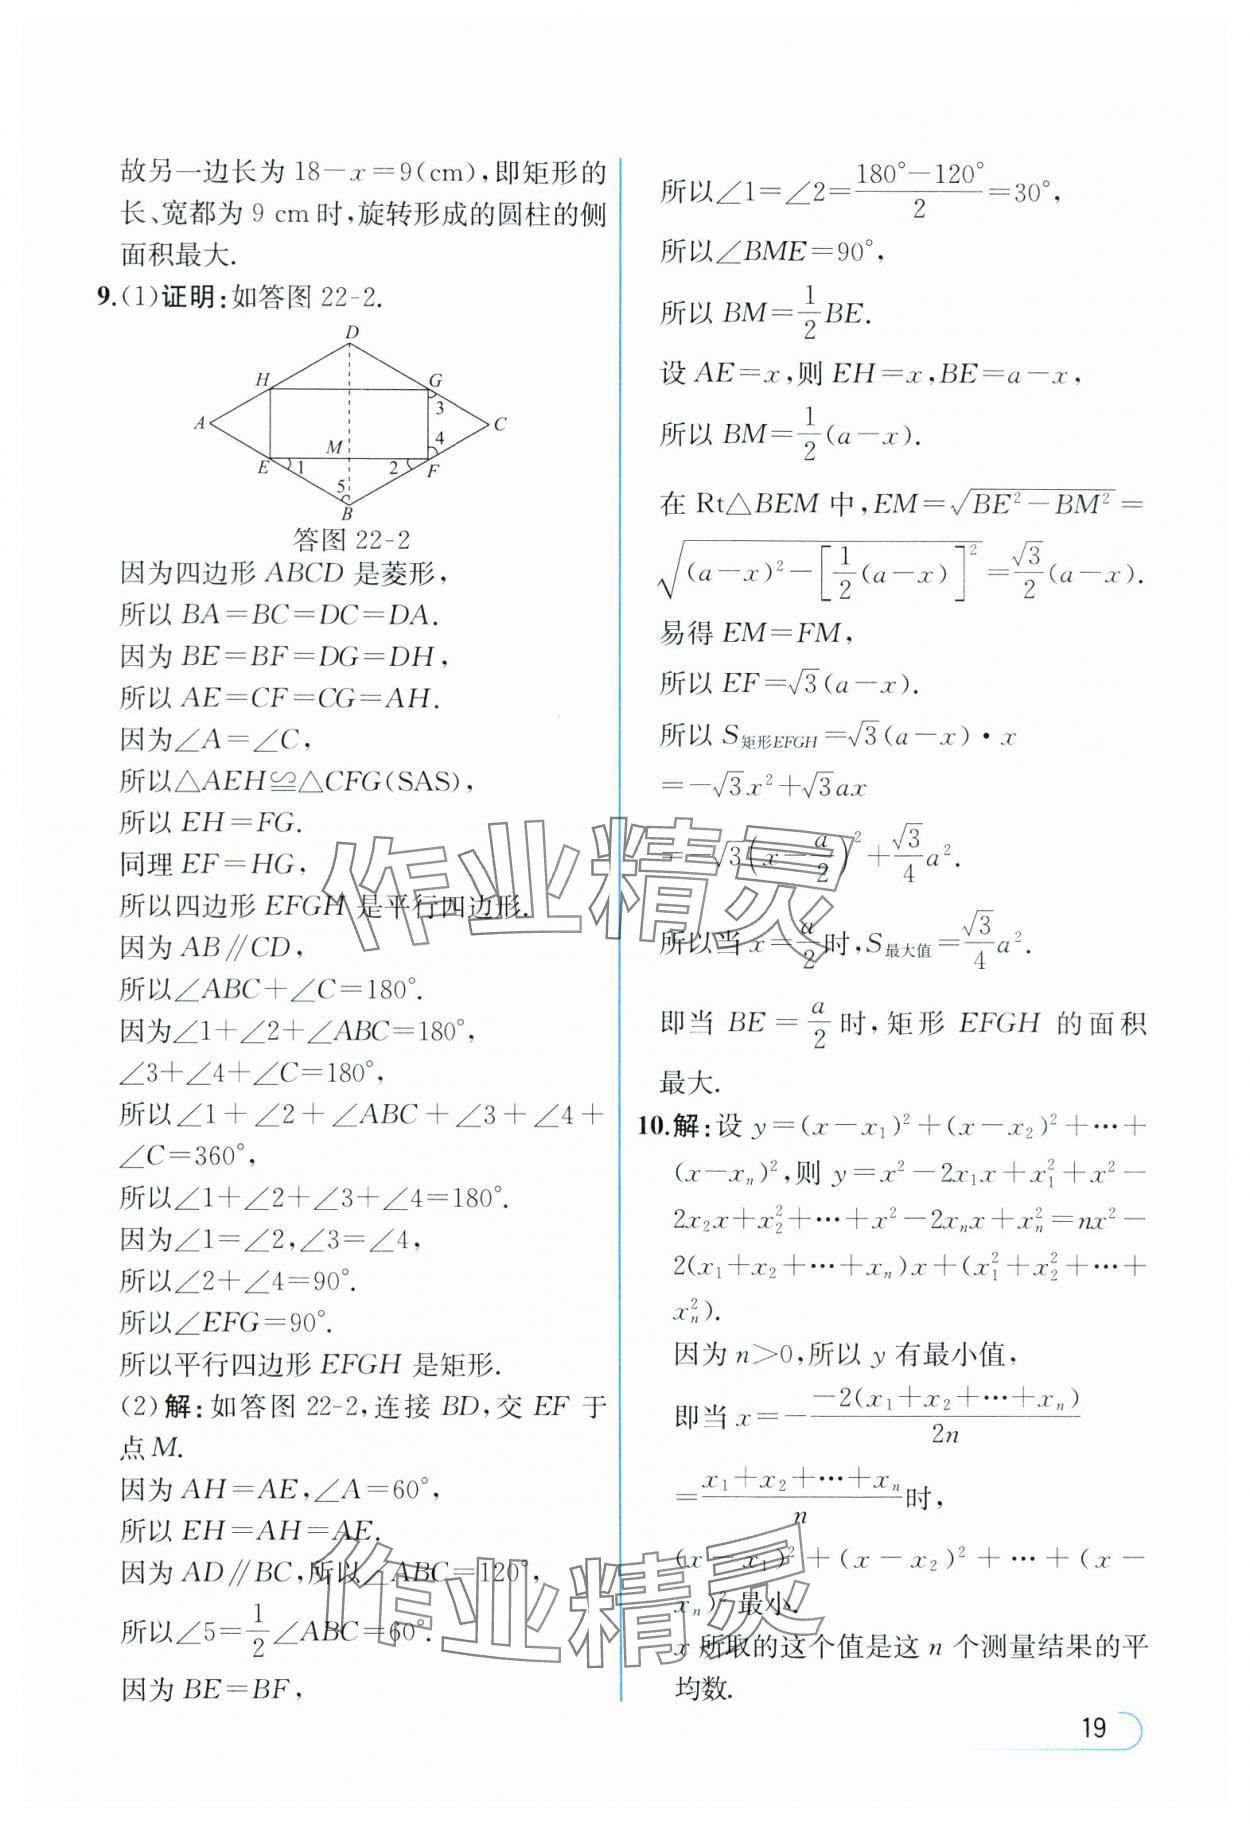 故另一边长为 18－x＝9(cm),即矩形的
长、宽都为 9 cm时,旋转形成的圆柱的侧
面积最大.
9.(1)证明:如答图 22-2.
D
H
G
3
A
C
4
M
E
1
2
F
5
B
答图 22-2
因为四边形 ABCD 是菱形,
所以 BA＝BC＝DC＝DA.
因为 BE＝BF＝DG＝DH,
所以 AE＝CF＝CG＝AH.
因为∠A＝∠C,
所以△AEH≌△CFG(SAS),
所以 EH＝FG.
同理 EF＝HG,
所以四边形 EFGH 是平行四边形.
因为 AB∥CD,
所以∠ABC＋∠C＝180°.
因为∠1＋∠2＋∠ABC＝180°,
∠3＋∠4＋∠C＝180°,
所以∠1＋∠2＋∠ABC＋∠3＋∠4＋
∠C＝360°,
所以∠1＋∠2＋∠3＋∠4＝180°.
因为∠1＝∠2,∠3＝∠4,
所以∠2＋∠4＝90°.
所以∠EFG＝90°.
所以平行四边形 EFGH 是矩形.
(2)解:如答图 22-2,连接 BD,交 EF 于
点 M.
因为 AH＝AE,∠A＝60°,
所以 EH＝AH＝AE.
因为 AD∥BC,所以∠ABC＝120°,
所以∠5＝1/2∠ABC＝60°.
因为 BE＝BF,
所以∠1＝∠2＝(180°－120°)/2＝30°,
所以∠BME＝90°,
所以 BM＝1/2BE.
设 AE＝x,则 EH＝x,BE＝a－x,
所以 BM＝1/2(a－x).
在 Rt△BEM 中,EM＝√(BE²－BM²)＝
√((a－x)²－[1/2(a－x)]²)＝√3/2(a－x).
易得 EM＝FM,
所以 EF＝√3(a－x).
所以 S矩形EFGH＝√3(a－x)·x
＝－√3x²＋√3ax
＝－√3(x－a/2)²＋√3/4a².
所以当 x＝a/2时,S最大值＝√3/4a².
即当 BE＝a/2时,矩形 EFGH 的面积
最大.
10.解:设 y＝(x－x₁)²＋(x－x₂)²＋…＋
(x－xₙ)²,则 y＝x²－2x₁x＋x₁²＋x²－
2x₂x＋x₂²＋…＋x²－2xₙx＋xₙ²＝nx²－
2(x₁＋x₂＋…＋xₙ)x＋(x₁²＋x₂²＋…＋
xₙ²).
因为 n>0,所以 y 有最小值,
即当 x＝－－2(x₁＋x₂＋…＋xₙ)/2n
＝(x₁＋x₂＋…＋xₙ)/n时,
(x－x₁)²＋(x－x₂)²＋…＋(x－
xₙ)²最小.
x 所取的这个值是这 n 个测量结果的平
均数.
19
作业精灵
作业精灵